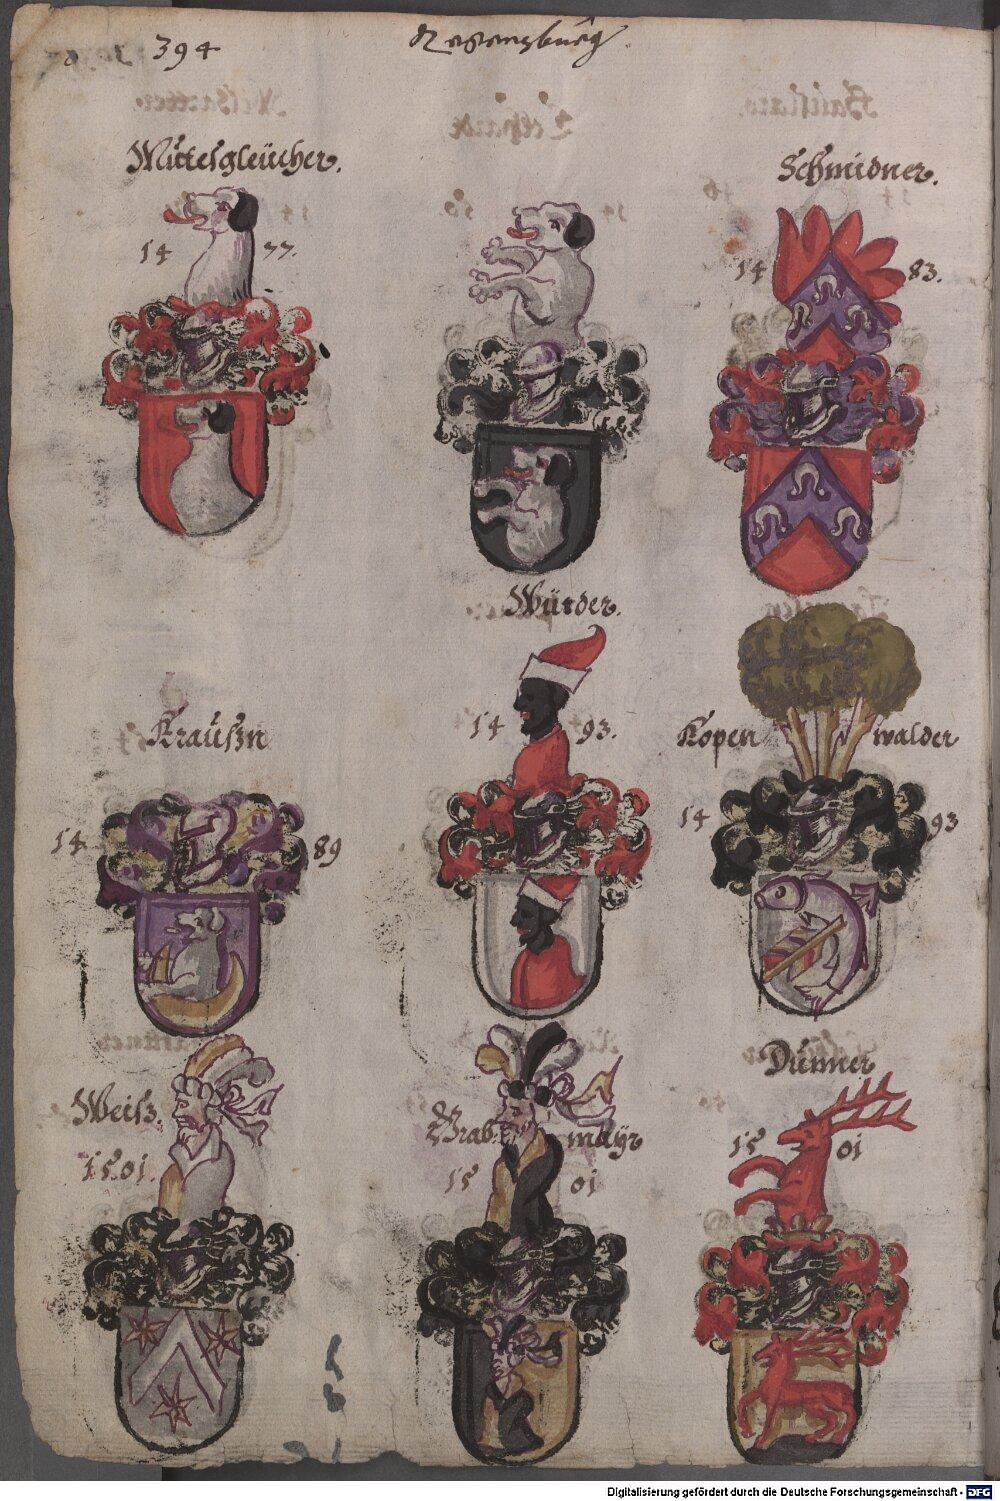 394
Regensburg
Mittesgleücher.
14 77.
Schmidner.
14 83.
Würder.
14 93.
Kraüßn
14 89
Kopen walder
14 93
Weiß.
1501.
Grab: mayr
15 01
Dünner
15 01
Digitalisierung gefördert durch die Deutsche Forschungsgemeinschaft - DFG